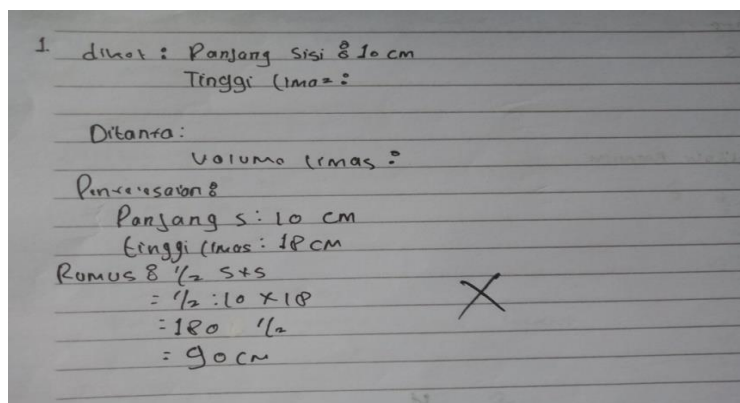 1. diket : Panjang sisi : 10 cm
Tinggi limas :
Ditanya:
Volume limas :
Penyelesaian :
Panjang s : 10 cm
tinggi limas : 18 cm
Rumus : 1/2 s×s
= 1/2 : 10 × 18
= 180 1/2
= 90 cm